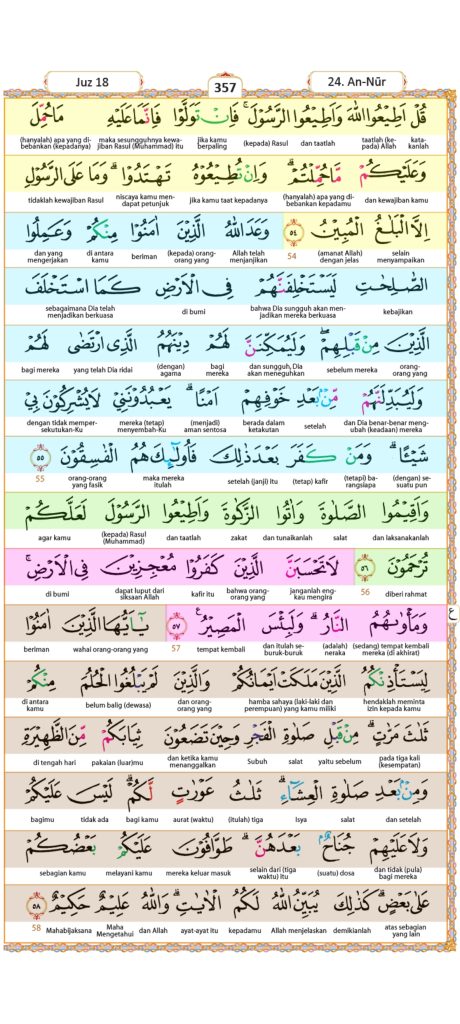 Juz 18
357
24. An-Nūr
قُلْ اَطِيْعُوا اللّٰهَ وَاَطِيْعُوا الرَّسُوْلَۚ فَاِنْ تَوَلَّوْا فَاِنَّمَا عَلَيْهِ مَا حُمِّلَ
katakanlah taatlah (kepada) Allah dan taatlah (kepada) Rasul jika kamu berpaling maka sesungguhnya kewajiban Rasul (Muhammad) itu (hanyalah) apa yang dibebankan (kepadanya)
وَعَلَيْكُمْ مَّا حُمِّلْتُمْۗ وَاِنْ تُطِيْعُوْهُ تَهْتَدُوْاۗ وَمَا عَلَى الرَّسُوْلِ
dan kewajiban kamu (hanyalah) apa yang dibebankan kepadamu jika kamu taat kepadanya niscaya kamu mendapat petunjuk tidaklah kewajiban Rasul
اِلَّا الْبَلٰغُ الْمُبِيْنُ ٥٤ وَعَدَ اللّٰهُ الَّذِيْنَ اٰمَنُوْا مِنْكُمْ وَعَمِلُوا
selain menyampaikan (amanat Allah) dengan jelas 54 Allah telah menjanjikan (kepada) orang-orang yang beriman di antara kamu dan yang mengerjakan
الصّٰلِحٰتِ لَيَسْتَخْلِفَنَّهُمْ فِى الْاَرْضِ كَمَا اسْتَخْلَفَ
kebajikan bahwa Dia sungguh akan menjadikan mereka berkuasa di bumi sebagaimana Dia telah menjadikan berkuasa
الَّذِيْنَ مِنْ قَبْلِهِمْۖ وَلَيُمَكِّنَنَّ لَهُمْ دِيْنَهُمُ الَّذِى ارْتَضٰى لَهُمْ
orang-orang yang sebelum mereka dan sungguh, Dia akan meneguhkan bagi mereka (dengan) agama yang telah Dia ridai bagi mereka
وَلَيُبَدِّلَنَّهُمْ مِّنْۢ بَعْدِ خَوْفِهِمْ اَمْنًاۗ يَعْبُدُوْنَنِيْ لَا يُشْرِكُوْنَ بِيْ
dan Dia benar-benar mengubah (keadaan) mereka setelah berada dalam ketakutan (menjadi) aman sentosa mereka (tetap) menyembah-Ku dengan tidak mempersekutukan-Ku
شَيْـًٔاۗ وَمَنْ كَفَرَ بَعْدَ ذٰلِكَ فَاُولٰۤىِٕكَ هُمُ الْفٰسِقُوْنَ ٥٥
(dengan) sesuatu pun (tetapi) barangsiapa (tetap) kafir setelah (janji) itu maka mereka itulah orang-orang yang fasik 55
وَاَقِيْمُوا الصَّلٰوةَ وَاٰتُوا الزَّكٰوةَ وَاَطِيْعُوا الرَّسُوْلَ لَعَلَّكُمْ
dan laksanakanlah salat dan tunaikanlah zakat dan taatlah (kepada) Rasul (Muhammad) agar kamu
تُرْحَمُوْنَ ٥٦ لَا تَحْسَبَنَّ الَّذِيْنَ كَفَرُوْا مُعْجِزِيْنَ فِى الْاَرْضِۚ
diberi rahmat 56 janganlah engkau mengira bahwa orang-orang yang kafir itu dapat luput dari siksaan Allah di bumi
وَمَأْوٰىهُمُ النَّارُۗ وَلَبِئْسَ الْمَصِيْرُ ࣖ ٥٧ يٰٓاَيُّهَا الَّذِيْنَ اٰمَنُوْا
(sedang) tempat kembali mereka (di akhirat) (adalah) neraka dan itulah seburuk-buruk tempat kembali 57 wahai orang-orang yang beriman
ع
لِيَسْتَأْذِنْكُمُ الَّذِيْنَ مَلَكَتْ اَيْمَانُكُمْ وَالَّذِيْنَ لَمْ يَبْلُغُوا الْحُلُمَ مِنْكُمْ
hendaklah meminta izin kepada kamu hamba sahaya (laki-laki dan perempuan) yang kamu miliki dan orang-orang yang belum balig (dewasa) di antara kamu
ثَلٰثَ مَرّٰتٍۗ مِنْ قَبْلِ صَلٰوةِ الْفَجْرِ وَحِيْنَ تَضَعُوْنَ ثِيَابَكُمْ مِّنَ الظَّهِيْرَةِ
pada tiga kali (kesempatan) yaitu sebelum salat Subuh dan ketika kamu menanggalkan pakaian (luar)mu di tengah hari
وَمِنْۢ بَعْدِ صَلٰوةِ الْعِشَاۤءِۗ ثَلٰثُ عَوْرٰتٍ لَّكُمْۗ لَيْسَ عَلَيْكُمْ
dan setelah salat Isya (itulah) tiga aurat (waktu) bagi kamu tidak ada bagimu
وَلَا عَلَيْهِمْ جُنَاحٌۢ بَعْدَهُنَّۗ طَوَّافُوْنَ عَلَيْكُمْ بَعْضُكُمْ
dan tidak (pula) bagi mereka (suatu) dosa selain dari (tiga waktu) itu mereka keluar masuk melayani kamu sebagian kamu
عَلٰى بَعْضٍۗ كَذٰلِكَ يُبَيِّنُ اللّٰهُ لَكُمُ الْاٰيٰتِۗ وَاللّٰهُ عَلِيْمٌ حَكِيْمٌ ٥٨
atas sebagian yang lain demikianlah Allah menjelaskan kepadamu ayat-ayat itu dan Allah Maha Mengetahui Mahabijaksana 58